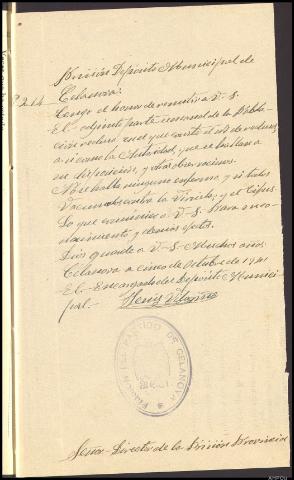 Prisión Depósito Municipal de
Celanova:
P. 214
Tengo el honor de remitir a V. S.
El adjunto parte semanal de la Pobla-
ción reclusa, en el que consta el nº de reclusos,
así como la Autoridad, que se hallan a
su disposición, y
No se halla ninguno enfermo, y si todos
Vacunados contra la Viruela, y el Tifus.
Lo que comunico a V. S. para su co-
nocimiento y demás efectos.
Dios guarde a V. S. Muchos años
Celanova a cinco de Octubre de 1941
El Encargado del Depósito Munici-
pal.
PARTIDO DE CELANOVA
Señor Director de la Prisión Provincial